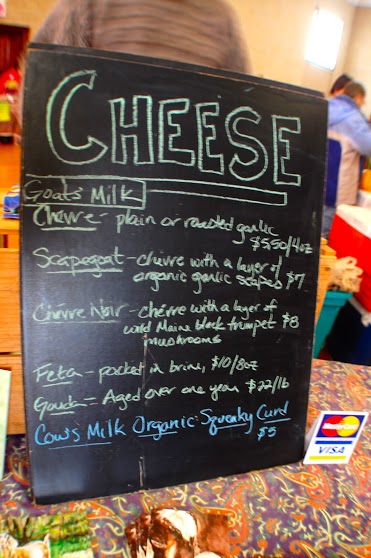 CHEESE
Goats Milk
Chévre - plain or roasted garlic
$5.50/4oz
Scapegoat - chévre with a layer of
organic garlic scapes $7
Chévre Noir - chévre with a layer of
wild Maine black trumpet $8
mushrooms
Feta - packed in brine, $10/8oz
Gouda - Aged over one year $22/lb
Cow's Milk Organic Squeaky Curd
$5
MasterCard
VISA